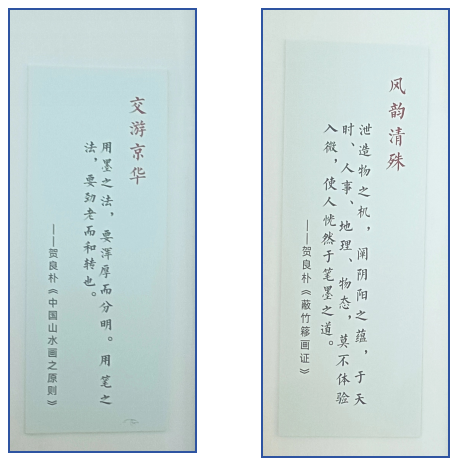 交游京华
用墨之法，要浑厚而分明。用笔之
法，要劲老而和转也。
——贺良朴《中国山水画之原则》
风韵清殊
泄造物之机，阐阴阳之蕴，于天
时、人事、地理、物态，莫不体验
入微，使人恍然于笔墨之道。
——贺良朴《蔽竹簃画证》